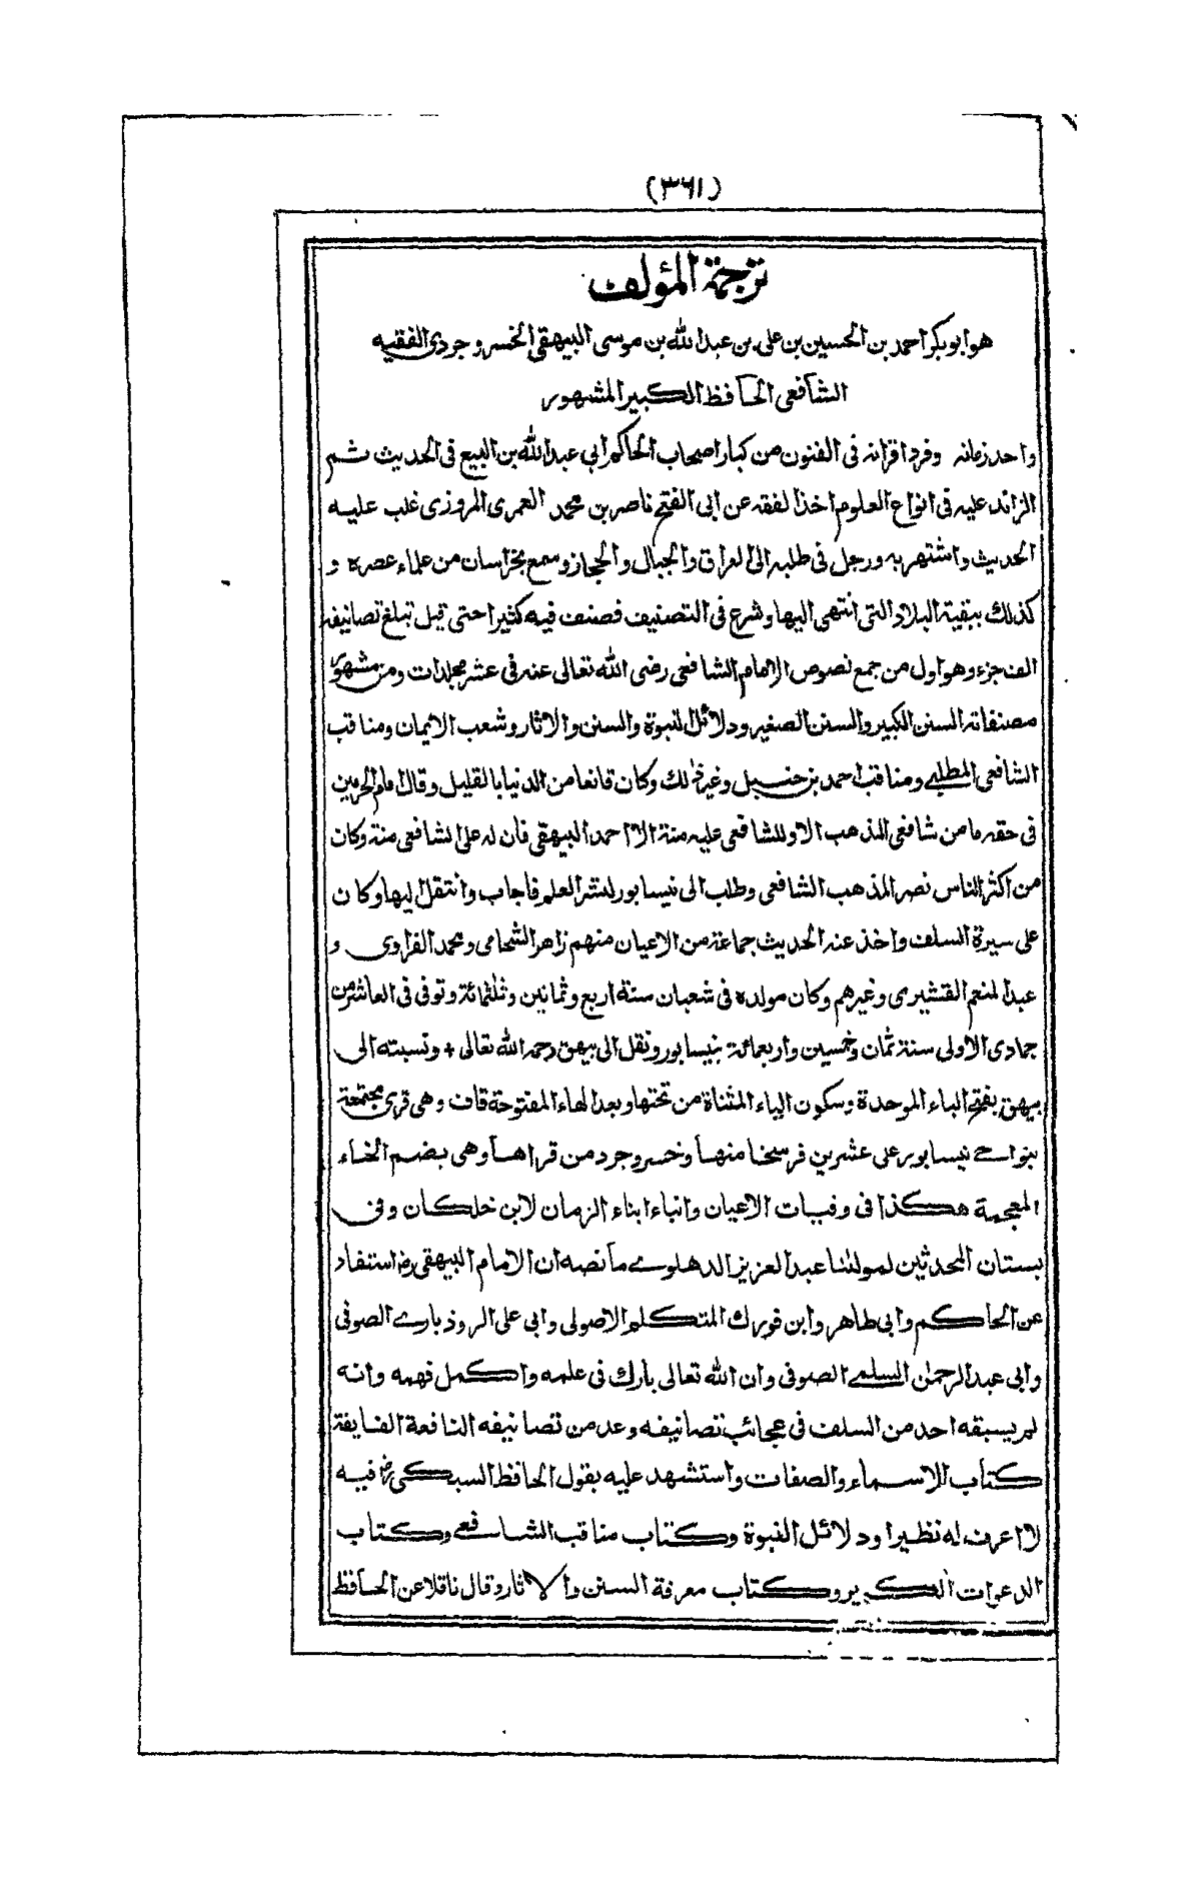 (٣٦١)
ترجمة المؤلف
هو ابو بكر احمد بن الحسين بن على بن عبد الله بن موسى البيهقى الخسروجردى الفقيه
الشافعى الحافظ الكبير المشهور
واحد زمانه وفرد اقرانه فى الفنون من كبار اصحاب الحاكم ابى عبد الله بن البيع فى الحديث ثم
الزائد عليه فى انواع العلوم اخذ الفقه عن ابى الفتح ناصر بن محمد العمرى المروزى غلب عليه
الحديث واشتهر به ورحل فى طلبه الى العراق والجبال والحجاز وسمع بخراسان من علماء عصره و
كذلك ببقية البلاد التى انتهى اليها وشرع فى التصنيف فصنف فيه كثيرا حتى قيل تبلغ تصانيفه
الف جزء وهو اول من جمع نصوص الامام الشافعى رضى الله تعالى عنه فى عشر مجلدات ومن مشهور
مصنفاته السنن الكبير والسنن الصغير ودلائل النبوة والسنن والاثار وشعب الايمان ومناقب
الشافعى المطلبے ومناقب احمد بن حنبل وغير ذلك وكان قانعا من الدنيا بالقليل وقال امام الحرمين
فى حقه ما من شافعى المذهب الا وللشافعى عليه منة الا احمد البيهقى فان له على الشافعى منة وكان
من اكثر الناس نصر المذهب الشافعى وطلب الى نيسابور لنشر العلم فاجاب وانتقل اليها وكان
على سيرة السلف واخذ عنه الحديث جماعة من الاعيان منهم زاهر الشحامى ومحمد الفراوى و
عبد المنعم القشيرى وغيرهم وكان مولده فى شعبان سنة اربع وثمانين وثلثمائة وتوفى فى العاشر من
جمادى الاولى سنة ثمان وخمسين واربعمائة بنيسابور ونقل الى بيهق رحمه الله تعالى + ونسبته الى
بيهق بفتح الباء الموحدة وسكون الياء المثناة من تحتها وبعد الهاء المفتوحة قاف وهى قرى مجتمعة
بنواحے نيسابور على عشرين فرسخا منها وخسروجرد من قراها وهى بضم الخاء
المعجمة هكذا فى وفيات الاعيان وانباء ابناء الزمان لابن خلكان وفى
بستان المحدثين لمولٰنا عبد العزيز الدهلوے ما نصه ان الامام البيهقى رح استفاد
عن الحاكم وابى طاهر وابن فورك المتكلم الاصولى وابى على الروذبارے الصوفى
وابى عبد الرحمٰن السلمے الصوفى وان الله تعالى بارك فى علمه واكمل فهمه وانه
لم يسبقه احد من السلف فى عجائب تصانيفه وعد من تصانيفه النافعة الفايقة
كتاب الاسماء والصفات واستشهد عليه بقول الحافظ السبكى رح فيه
لا اعرف له نظيرا ودلائل النبوة وكتاب مناقب الشافعے وكتاب
الدعوات الكبير وكتاب معرفة السنن والاثار وقال ناقلا عن الحافظ